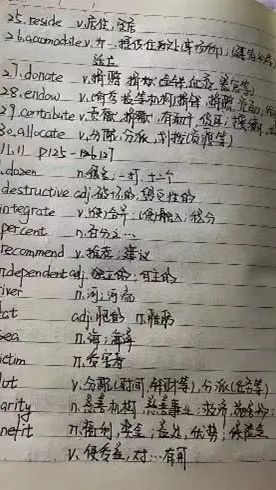 25. reside v.居住,定居
26. accomodate v.为…提供住处(或房间);
适应
27. donate v.捐赠,捐献
28. endow v.(向学校等机构)捐钱,捐赠
29. contribute v.贡献,捐献,有助于,促使;投稿
30. allocate v.分配,分派,划拨(资源等)
11.11 P125-126.127
dozen n.(一)打,十二个
destructive adj.破坏的,毁灭性的
integrate v.(使)合并;(使)融入;积分
percent n.百分之…
recommend v.推荐;建议
independent adj.独立的;自主的
iver n.河;河流
at adj.胖的 n.脂肪
sea n.海;海洋
ictim n.受害者
lot v.分配(时间、钱财等),分派(任务等)
arity n.慈善机构,慈善事业;救济,施舍物;
nefit n.福利,奖金;益处,优势;保险金
v.使受益,对…有用